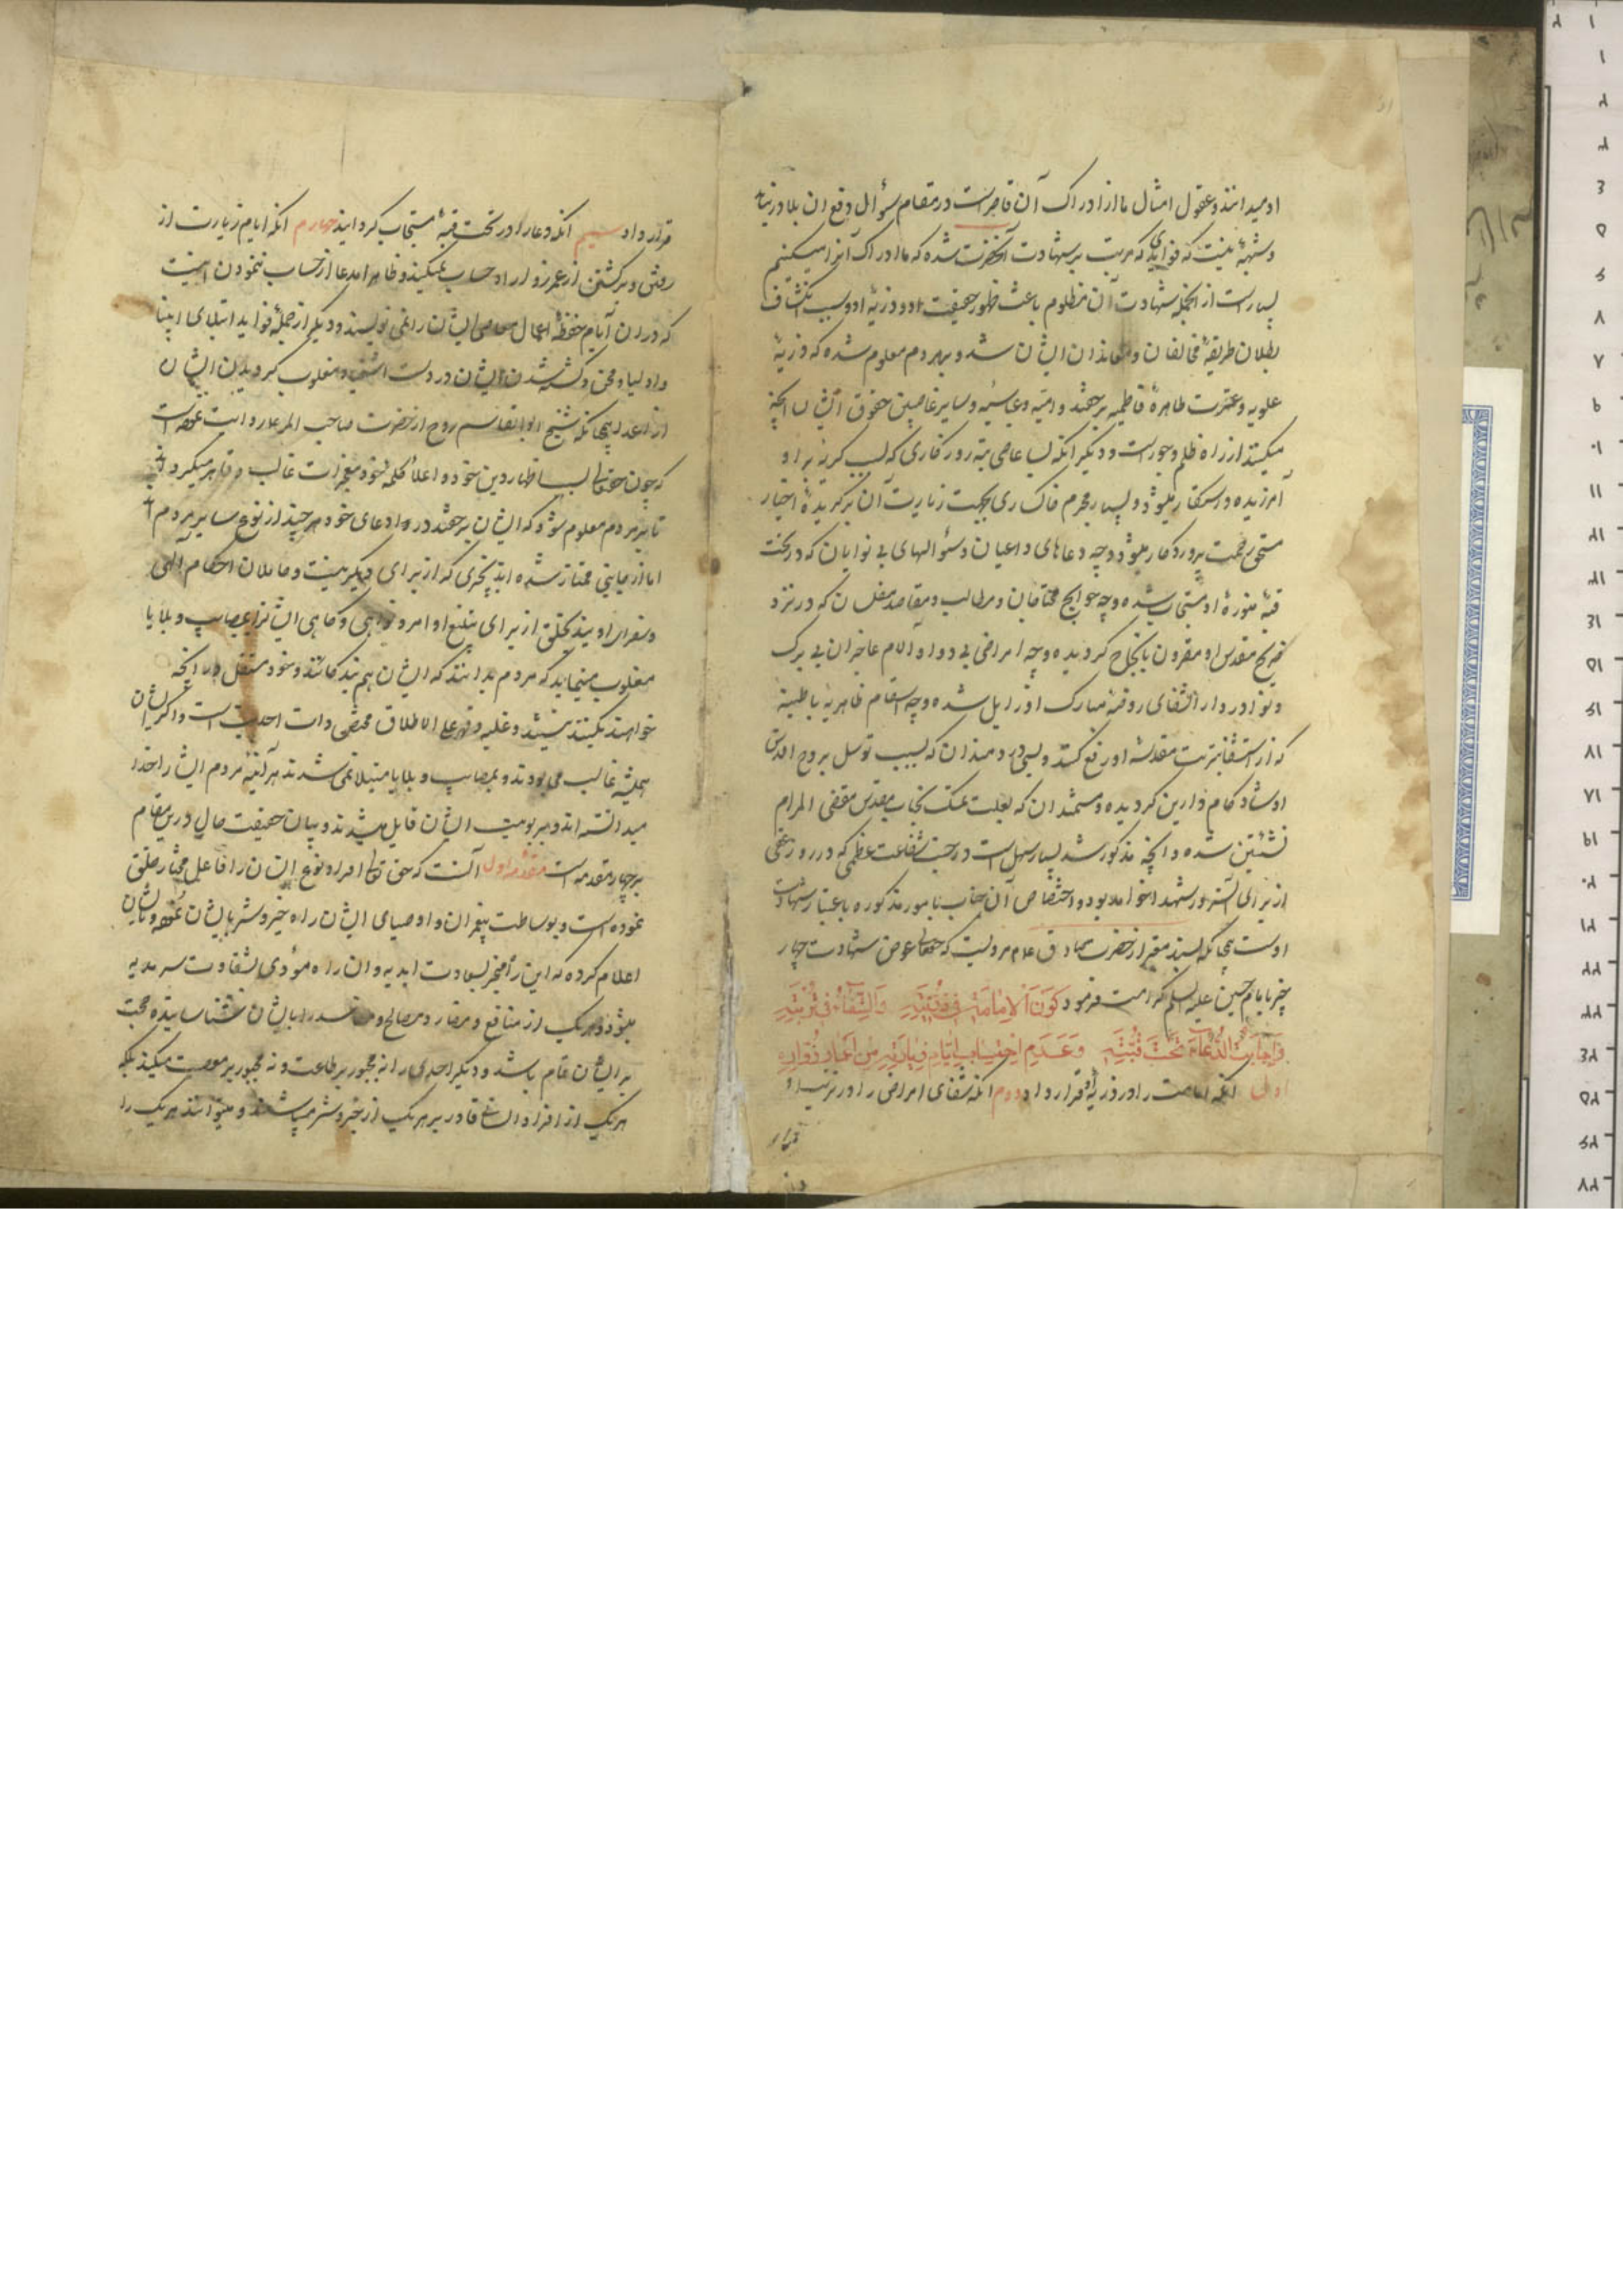 او میدانند و عقول امثال ما از ادراک آن قاصر است در مقام سؤال دفع ان بلا در نیامد
و شبهه نیست که فوایدی که مرتب بر شهادت آنحضرت شده که ما ادراک آنرا میکنیم
بسیار است از انجمله شهادت آن مظلوم باعث ظهور حقیقت او و ذریه او و سبب انکشاف
بطلان طریقهٔ مخالفان و معاندان ایشان شد و بهر مردم معلوم شده که ذریهٔ
علویه و عترت طاهرهٔ فاطمیه بر حقند و امیه و عباسیه و سایر غاصبین حقوق ایشان انچه
میکنند از راه ظلم و جور است و دیگر انکه بسا عاصی تبه روزکاری که بسبب کریه بر او
آمرزیده و رستکار میشود و بسیار مجرم خاکساری بجهت زیارت آن برکزیدهٔ اخیار
مستحق رحمت پروردکار میشود و چه دعاهای داعیان و سؤالهای بی نوایان که در تحت
قبهٔ منورهٔ او مستجاب شده و چه حوایج محتاجان و مطالب و مقاصد مفلسان که در نزد
ضریح مقدس او مقرون بانجاح کردیده و چه امراض بی دوا و آلام عاجزان بی برک
و نوا در دار الشفای روضهٔ مبارک او زایل شده و چه اسقام ظاهریه باطنیه
که از استشفا بتربت مقدسهٔ او رفع کشته و بسی دردمندان که بسبب توسل بروح اقدس
او شاد کام دارین کردیده و مستمندان که بعلت تمسک بجناب مقدس مقضی المرام
نشئتین شده و انچه مذکور شد بسیار سهل است در جنب شفاعت عظمی که در روز جزا
از برای آن سرور شهدا خواهد بود و اختصاص آن جناب بامور مذکوره باعتبار شهادت
اوست چنانکه بسند معتبر از حضرت صادق علیه السلام مرویست که حقتعالی عوض شهادت چهار
چیز بامام حسین علیه السلم کرامت فرمود کَونَ الاِمامَةِ فی ذُرِّیَّتِهِ وَالشِّفاءَ فی تُربَتِهِ
وَاِجابَتَ الدُّعاءِ تَحتَ قُبَّتِهِ وَعَدَمَ اِحتِسابِ اَیّامِ زِیارَتِهِ مِن اَعمارِ زُوّارِهِ
اول انکه امامت را در ذریهٔ او قرار داد دوم انکه شفای امراض را در تربت او
قرار
قرار داد سیم انکه دعا را در تحت قبهٔ مستجاب کردانید چهارم انکه ایام زیارت از
رفتن و برکشتن از عمر زوار او حساب نمیکنند و ظاهرا مدعا از حساب ننمودن اینست
که در ان ایام حفظهٔ اعمال معاصی ایشان را نمی نویسند و دیکر از جملهٔ فواید ابتلای انبیا
و اولیا و محن و کشته شدن ایشان در دست اشقیا و مغلوب کردیدن ایشان
از اعدا چنانکه شیخ ابو القاسم روح از حضرت صاحب الامر روایت نموده است
که چون حقتعالی بسبب اظهار دین خود و اعلاء کلمهٔ خود معجزات غالب و قاهر میکرداند
تا بر مردم معلوم شود که ایشان بر حقند در ادعای خود هر چند از نوع سایر مردمند
اما از جایی ممتاز شده اند بچیزی که از برای دیکری نیست و حاملان احکام الهی
و سفرای اویند بخلق از برای تبلیغ اوامر و نواهی و کاهی ایشانرا بمصایب و بلایا
مغلوب مینماید که مردم بدانند که ایشان هم بندکانند و خود مستقل در انچه
خواهند بکنند نیستند و غلبه و قهر علی الاطلاق مختص ذات احدیت است و اکر ایشان
همیشه غالب می بودند و بمصایب و بلایا مبتلا نمی شدند هر آینه مردم ایشانرا خدا
میدانسته اند و بربوبیت ایشان قایل میشدند و بیان حقیقت حال درین مقام
بر چهار مقدمه است مقدمه اول آنست که حق تعالی افراد نوع انسان را فاعل مختار خلق
نموده است و بوساطت پیغمبران و اوصیای ایشان راه خیر و شر بایشان نموده و بایشان
اعلام کرده که این راه منجر بسعادت ابدیه و ان راه مؤدی بشقاوت سرمدیه
میشود و هر یک از منافع و مضار و مصالح و مفاسد را بایشان شناسانیده که حجت
بر ایشان تمام باشد و دیکر احدی را نه مجبور بر طاعت و نه مجبور بر معصیت میکند بلکه
هر یک از افراد انسانی قادر بر هر یک از خیر و شر میباشند و میتوانند هر یک را